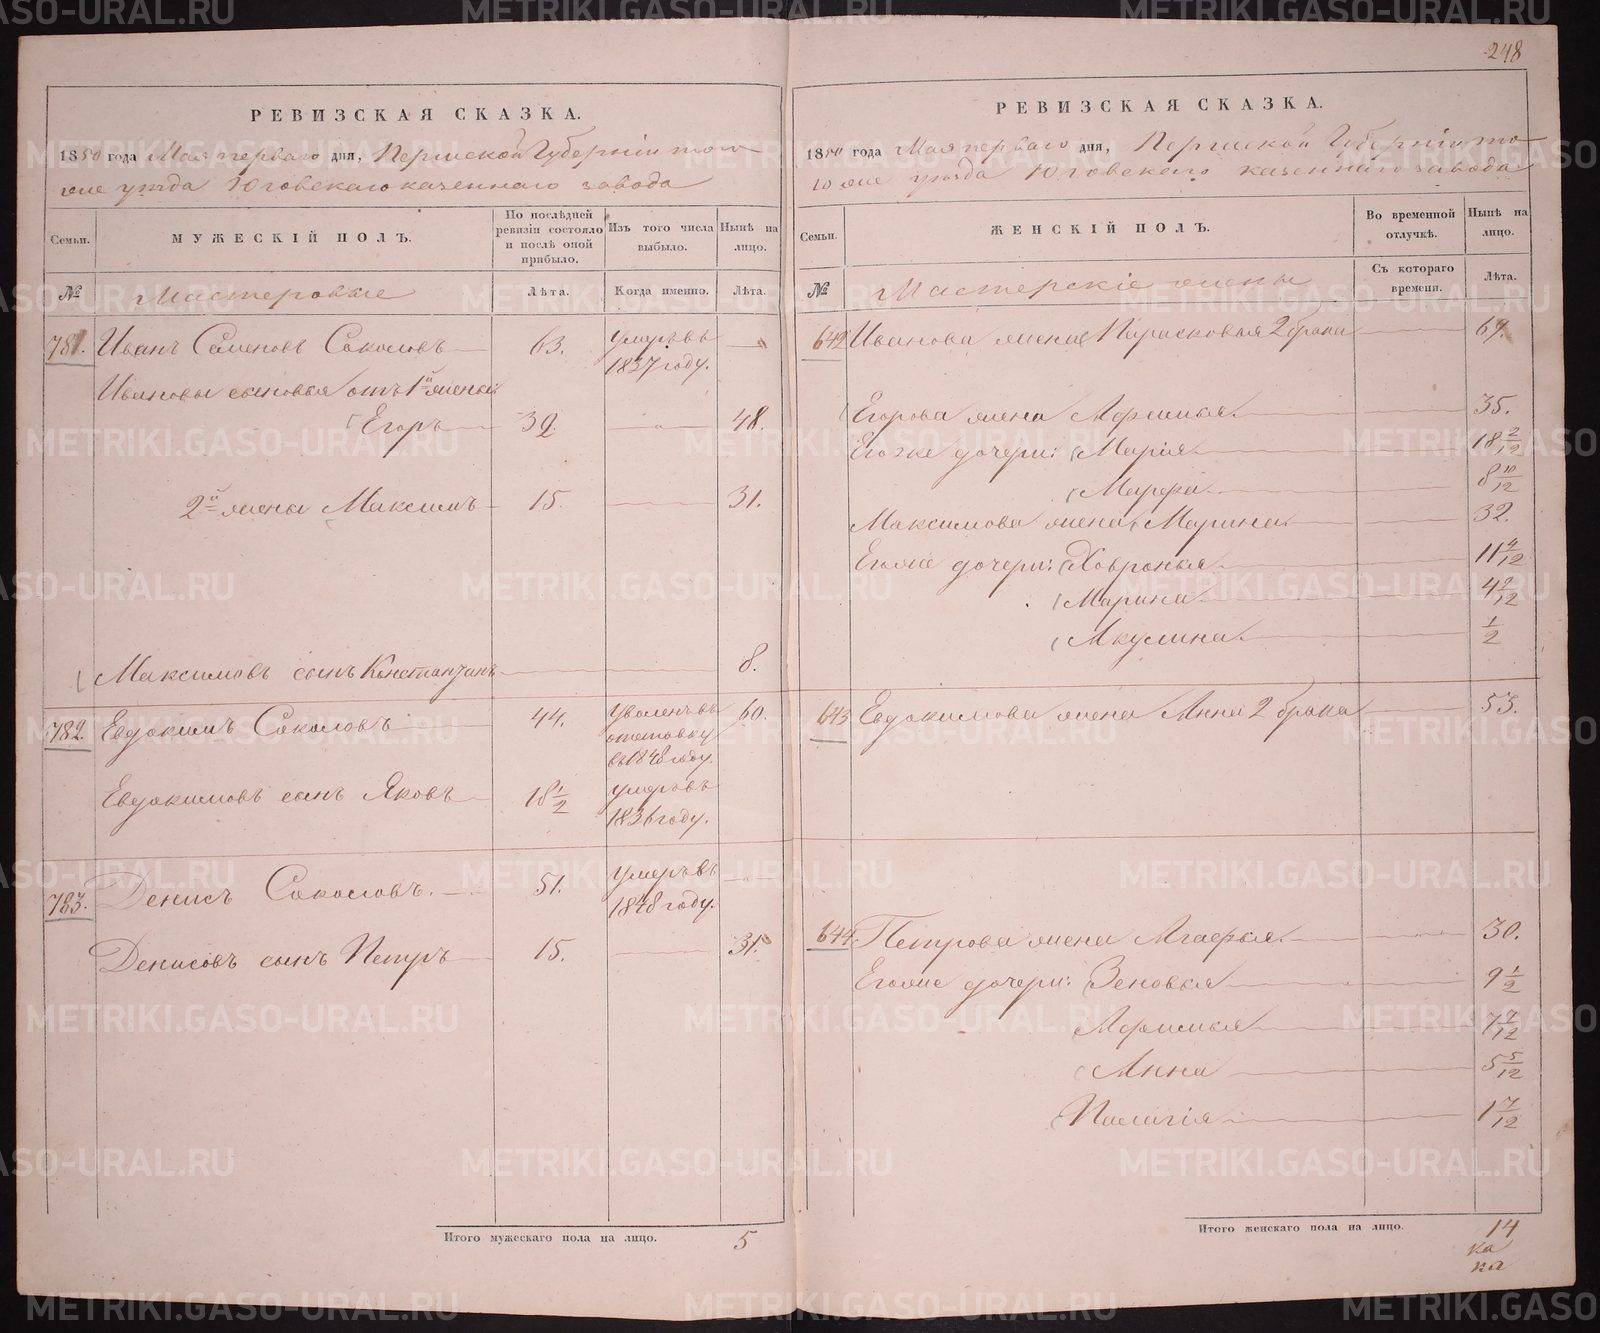 248
РЕВИЗСКАЯ СКАЗКА.
1850 года Мая перваго дня, Пермской Губерніи того
же уезда Юговскаго казеннаго завода
Семьи.
МУЖЕСКІЙ ПОЛЪ.
По послѣдней ревизіи состояло и послѣ оной прибыло.
Изъ того числа выбыло.
Нынѣ на лицо.
№
Мастеровые
Лѣта.
Когда именно.
Лѣта.
781. Иванъ Семеновъ Соколовъ 63. умеръ въ 1837 году.
Ивановы сыновья отъ 1й жены:
Егоръ 32. 48.
2й жены Максимъ 15. 31.
Максимовъ сынъ Константинъ 8.
782. Евдокимъ Соколовъ 44. уволенъ въ отставку въ 1848 году. 60.
Евдокимовъ сынъ Яковъ 18 1/2 умеръ въ 1836 году.
783. Денисъ Соколовъ. 51. умеръ въ 1848 году.
Денисовъ сынъ Петръ 15. 31.
Итого мужескаго пола на лицо. 5
РЕВИЗСКАЯ СКАЗКА.
1850 года Мая перваго дня, Пермской Губерніи то-
го же уезда Юговскаго казеннаго завода
Семьи.
ЖЕНСКІЙ ПОЛЪ.
Во временной отлучкѣ.
Нынѣ на лицо.
№
Мастерскіе жены
Съ котораго времени.
Лѣта.
642 Иванова жена Парасковья 2 брака 69.
Егорова жена Афимья. 35.
Егоже дочери: Марія. 18 2/12
Марфа. 8 10/12
Максимова жена Марина. 32.
Егоже дочери: Хавронья 11 4/12
Марина 4 2/12
Акулина. 1/2
643 Евдокимова жена Анна 2 брака 53.
644 Петрова жена Агафья. 30.
Егоже дочери: Зеновья 9 1/2
Афимья 7 7/12
Анна 5 5/12
Палагія. 1 7/12
Итого женскаго пола на лицо. 14